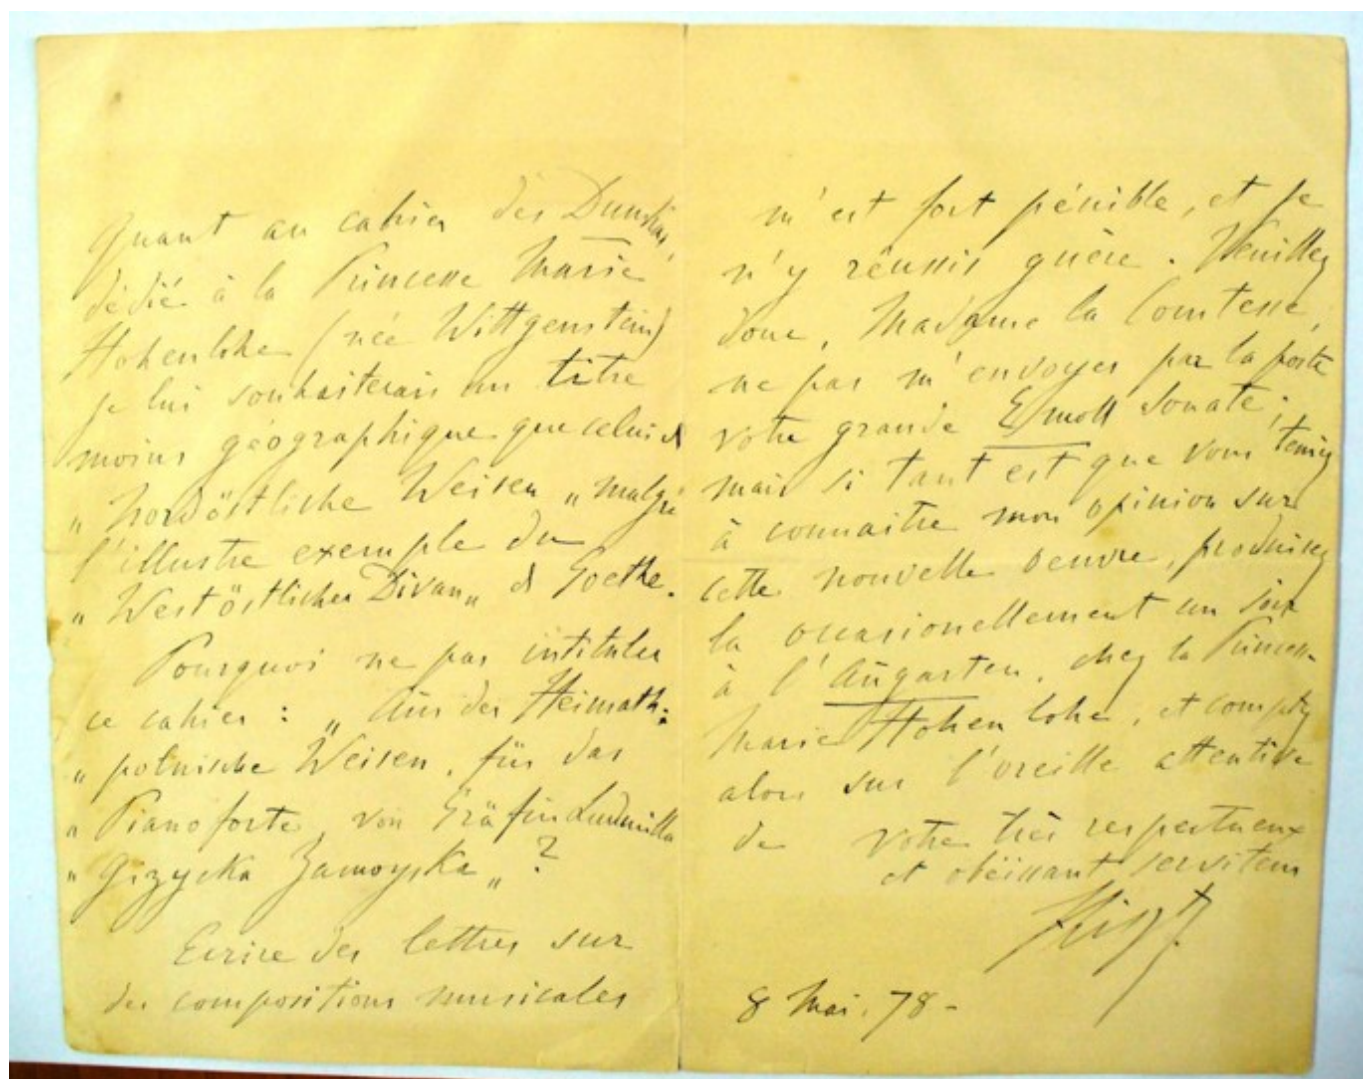 Quant au cahier des Dumkas,
dédié à la Princesse Marie
Hohenlohe (née Wittgenstein)
je lui souhaiterais un titre
moins géographique que celui de
„Nordöstliche Weisen„ malgré
l'illustre exemple du
„Westöstlicher Divan„ de Goethe.
Pourquoi ne pas intituler
ce cahier: „Aus der Heimath:
„polnische Weisen, für das
„Pianoforte, von Gräfin Ludmilla
„Gizycka Zamoyska„?
Ecrire des lettres sur
des compositions musicales
m'est fort pénible, et je
n'y réussis guère. Veuillez
donc, Madame la Comtesse,
ne pas m'envoyer par la poste
votre grande E moll Sonate;
mais si tant est que vous teniez
à connaitre mon opinion sur
cette nouvelle oeuvre, produisez
la occasionellement un soir
à l'Augarten, chez la Princesse
Marie Hohenlohe, et comptez
alors sur l'oreille attentive
de votre très respectueux
et obéissant serviteur
FLiszt.
8 Mai. 78-